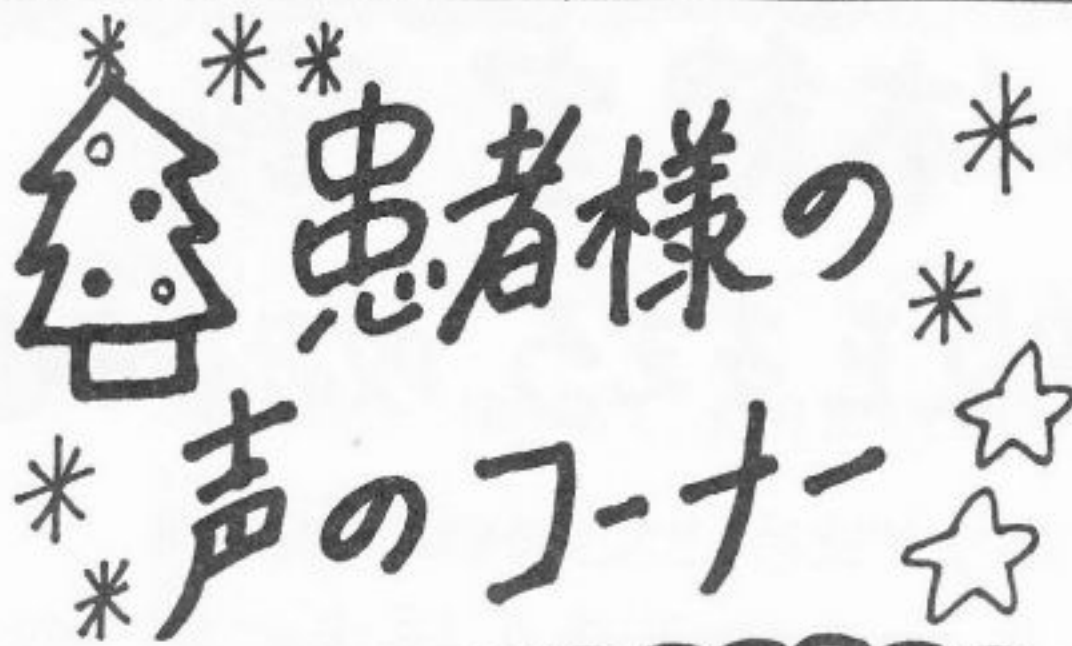 患者様の
声のコーナー